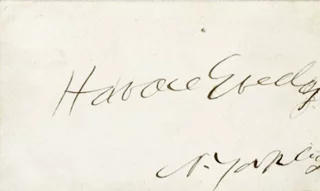 Horace Greeley
N. York City